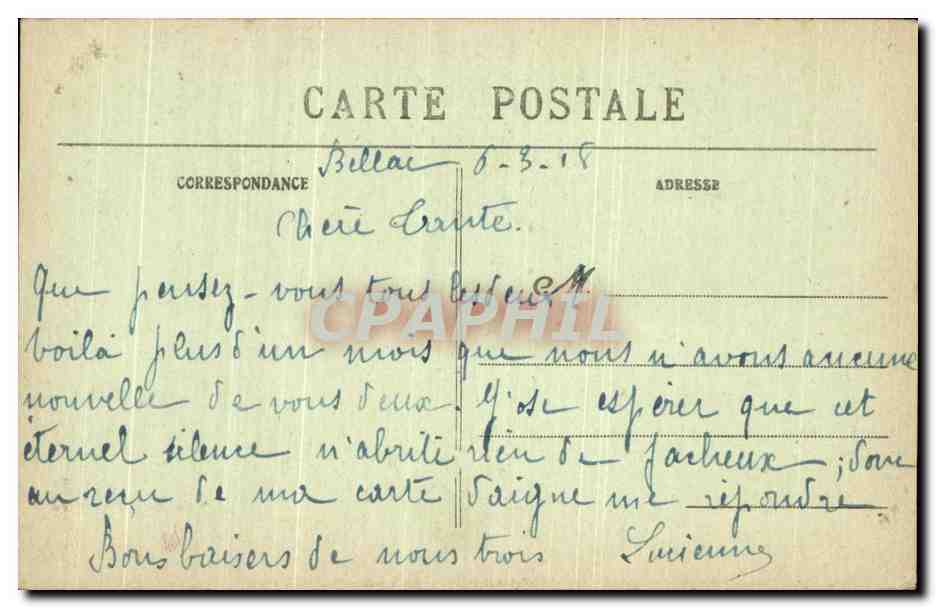 CARTE POSTALE
Bellac 6-3-18
CORRESPONDANCE
ADRESSE
Chère Tante.
Que pensez-vous tous les deux M.
CPAPHIL
voilà plus d'un mois que nous n'avons aucune
nouvelle de vous deux. J'ose espérer que cet
éternel silence n'abrite rien de facheux ; donc
au reçu de ma carte daigne me répondre
Bons baisers de nous trois Lucienne